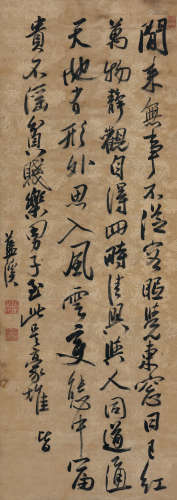 閒來無事不從容睡覺東窗日已紅
萬物靜觀自得四時佳興與人同道通
天地有形外思入風雲變態中富
貴不淫貧賤樂男子至此是豪雄 皆
溪